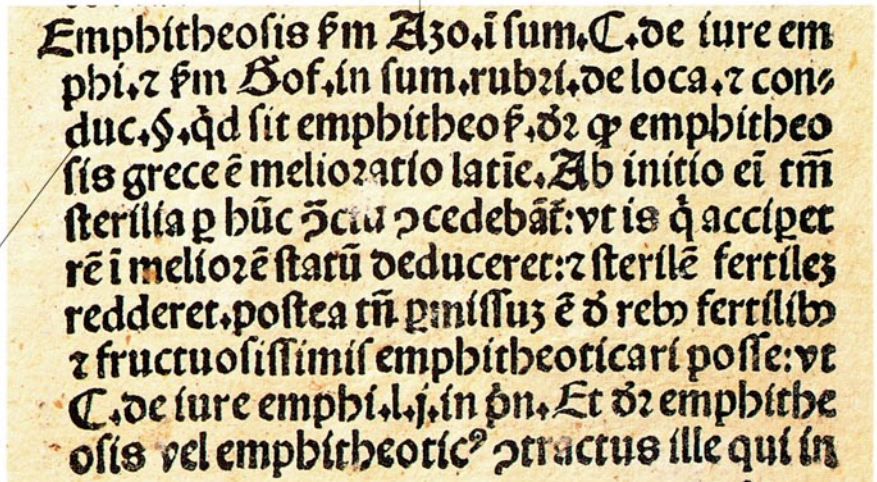 Emphitheoſis ẜm Azo.ī ſum.C.de iure em
phi.⁊ ẜm Hoſ.in ſum.rubꝛi.de loca.⁊ con⸗
duc.§.qd̓ ſit emphitheoẜ.dꝛ̄ ꝙ emphitheo
ſis grece ē melioꝛatio latīe.Ab initio eī tm̄
ſterilia ꝑ hūc ↄ̄ctū ↄcedebāt̄:vt is q̇ acciꝑet
rē ī melioꝛē ſtatū deduceret:⁊ ſterilē fertileꝫ
redderet.poſtea tn̄ ꝑmiſſuꝫ ē đ rebꝰ fertilibꝰ
⁊ fructuoſiſſimiſ emphitheoticari poſſe:vt
C.de iure emphi.l.j.in pͥn.Et dꝛ̄ emphithe
oſis vel emphitheoticꝰ ↄtractus ille qui in